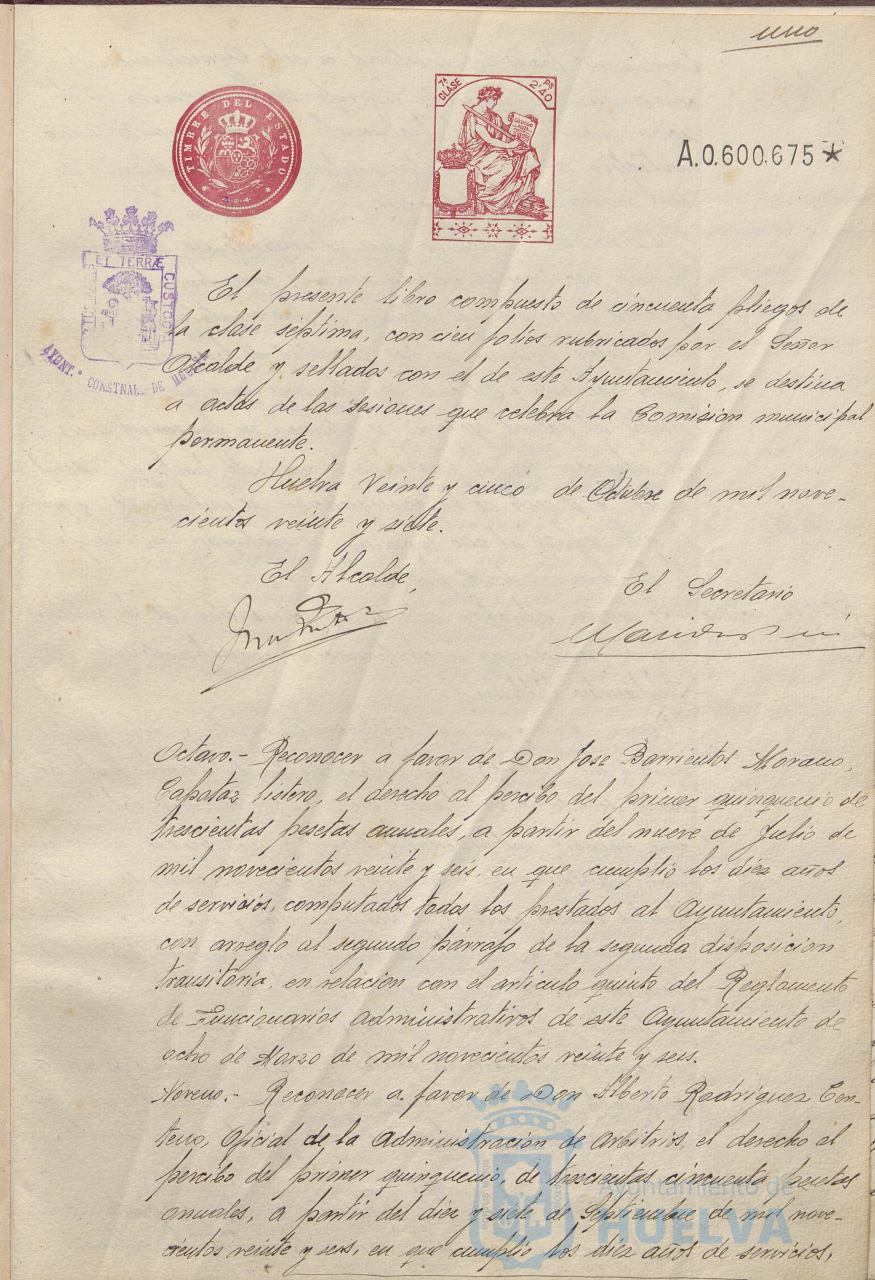 uno
TIMBRE DEL ESTADO
7ª CLASE
Ps 2'40
A.0.600.675*
ET TERRÆ CUSTOD
AYUNT. CONSTNAL. DE
El presente libro compuesto de cincuenta pliegos de
la clase séptima, con cien folios rubricados por el Señor
Alcalde y sellados con el de este Ayuntamiento, se destina
a actas de las sesiones que celebra la Comision municipal
permanente.
Huelva Veinte y cinco de Octubre de mil nove-
cientos veinte y siete.
El Alcalde,
El Secretario
Octavo.- Reconocer a favor de Don Jose Barrientos Morano,
Capataz listero, el derecho al percibo del primer quinquenio de
trescientas pesetas anuales, a partir del nueve de Julio de
mil novecientos veinte y seis, en que cumplio los diez años
de servicios, computados todos los prestados al Ayuntamiento,
con arreglo al segundo párrafo de la segunda disposicion
transitoria, en relacion con el articulo quinto del Reglamento
de Funcionarios administrativos de este Ayuntamiento de
ocho de Marzo de mil novecientos veinte y seis.
Noveno.- Reconocer a favor de Don Alberto Rodriguez Cen-
teno, Oficial de la Administracion de arbitrios, el derecho al
percibo del primer quinquenio, de trescientas cincuenta pesetas
anuales, a partir del diez y siete de Septiembre de mil nove-
cientos veinte y seis, en que cumplio los diez años de servicios,
Ayuntamiento de
HUELVA